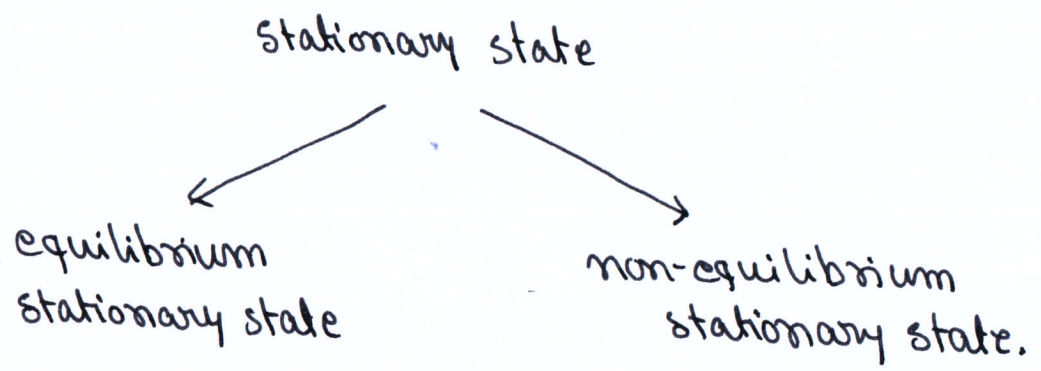 stationary state
equilibrium
stationary state
non-equilibrium
stationary state.